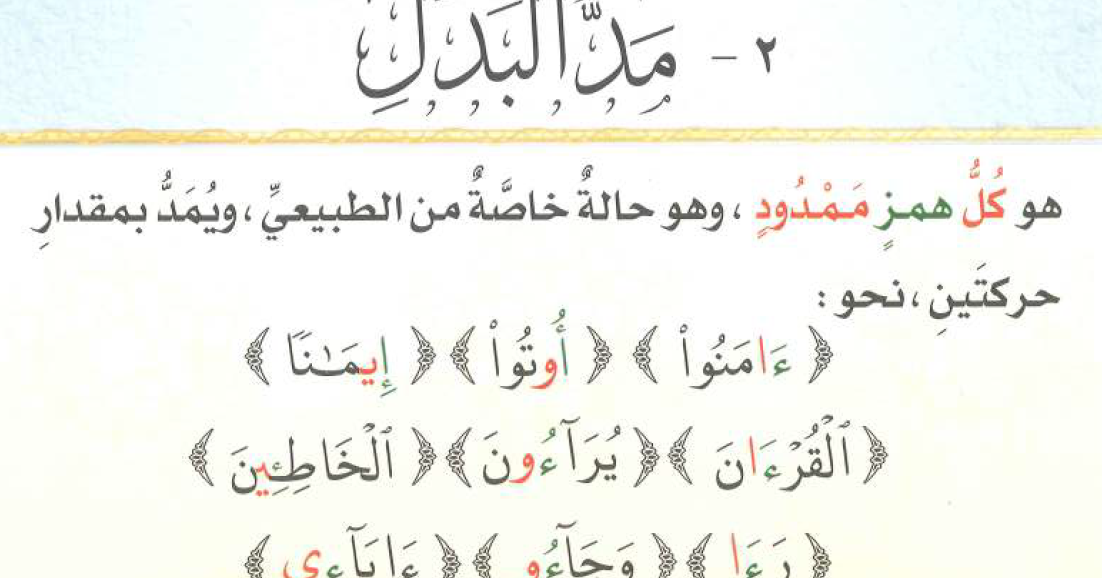 ٢ - مَدُّ الْبَدَلِ
هو كُلُّ همزٍ مَمْدُودٍ ، وهو حالةٌ خاصَّةٌ من الطبيعيِّ ، ويُمَدُّ بمقدارِ
حركتَينِ ، نحو :
﴿ ءَامَنُواْ ﴾ ﴿ أُوتُواْ ﴾ ﴿ إِيمَـٰنًا ﴾
﴿ ٱلْقُرْءَانَ ﴾ ﴿ يُرَآءُونَ ﴾ ﴿ ٱلْخَاطِـِٔينَ ﴾
﴿ رَءَا ﴾ ﴿ وَجَآءُو ﴾ ﴿ ءَابَآءِي ﴾